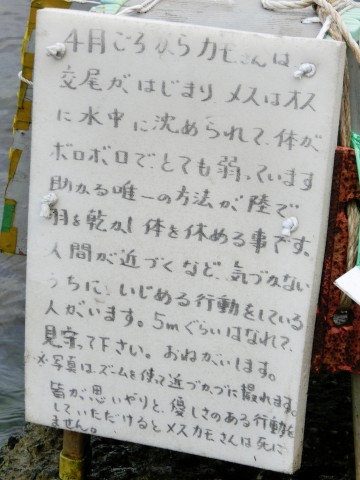 4月ごろからカモさんは
交尾がはじまり メスはオス
に水中に沈められて、体が
ボロボロで、とても弱っています
助かる唯一の方法が陸で
羽を乾かし体を休める事です。
人間が近づくなど、気づかない
うちに、いじめる行動をしている
人がいます。5mぐらいはなれて、
見守って下さい。おねがいします。
※写真は、ズームを使って近づかづに撮れます。
皆が思いやりと、優しさのある行動を
していただけるとメスカモさんは死に
ません。